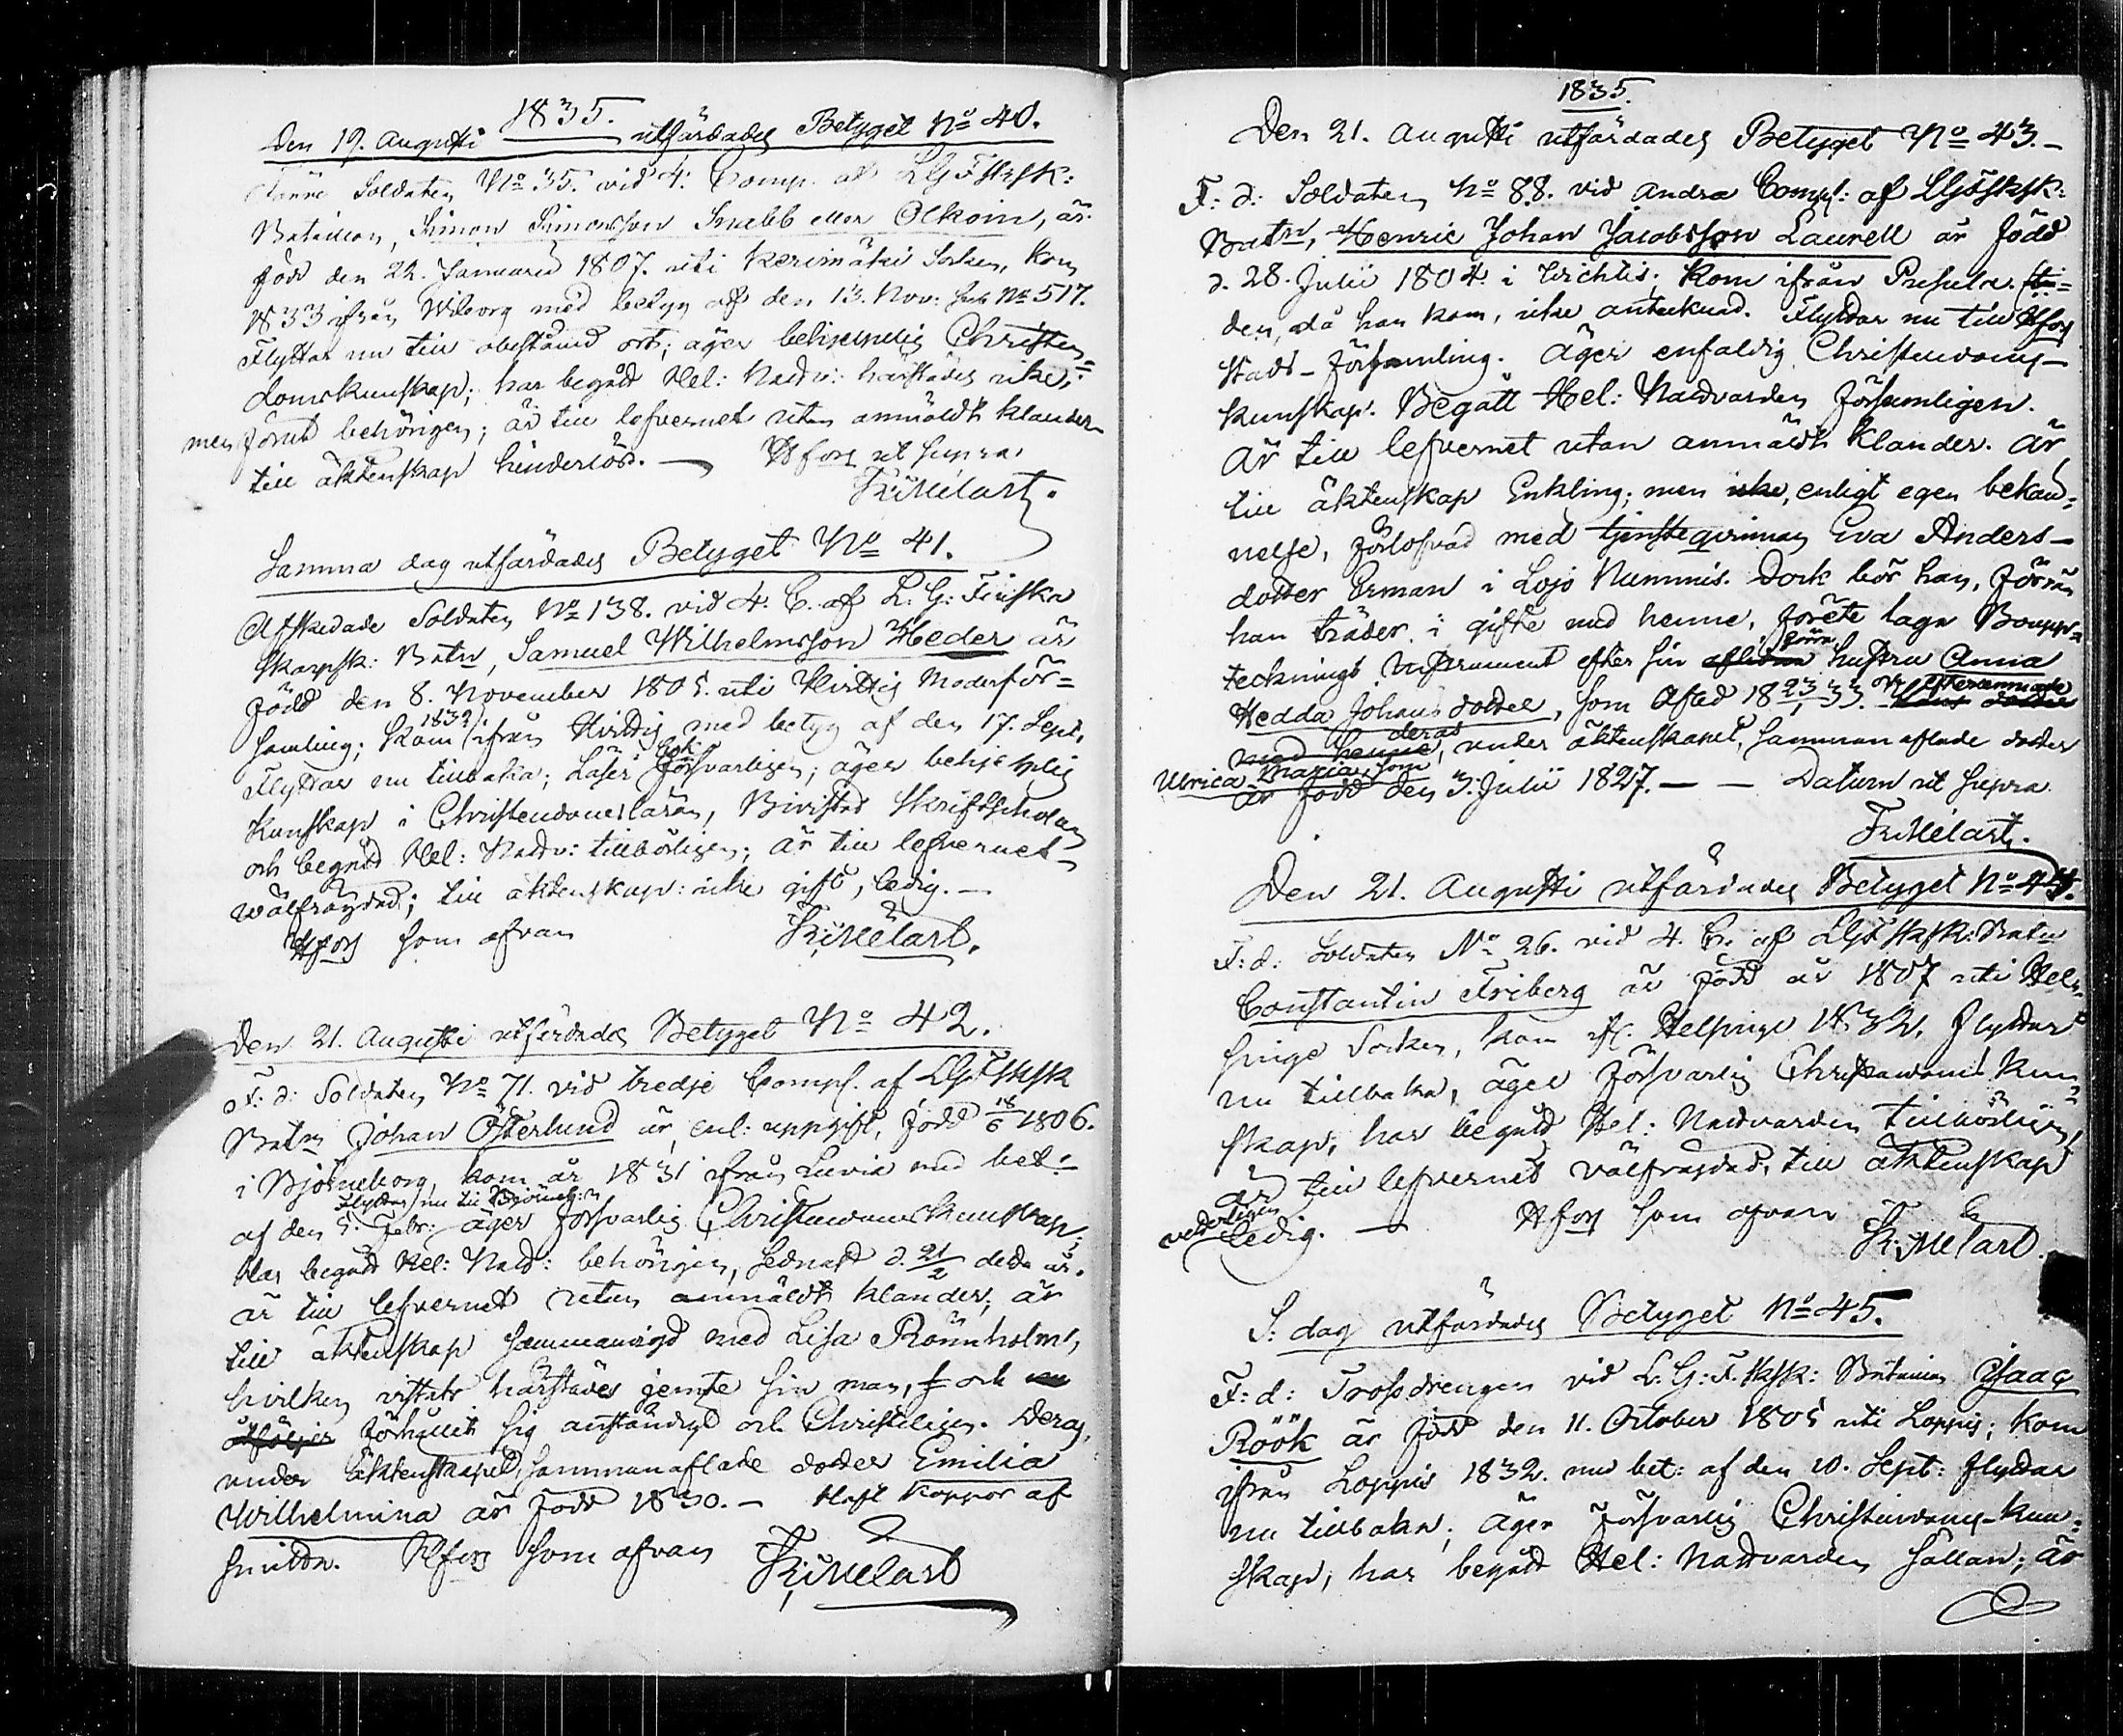 1835.
Den 19. Augusti utfärdades Betyget No 40.
Förre Soldaten No 35. vid 4. Comp. af LGFSksk:
Bataillon, Simon Simonsson Snabb eller Olkoin, är
född den 22. Januarii 1807. uti Kerimäki Socken, kom
1833 ifrån Wiborg med betyg af den 13. Nov: sub No 517.
Flyttar nu till obestämd ort; äger behjelpelig Christen=
domskunskap; har begådt Hel: Nattv: härstädes icke,
men förut behörigen; är till lefvernet utan anmäldt klander
till äktenskap hinderlös. — Hfors ut supra.
Fr: Melart.
Samma dag utfärdades Betyget No 41.
Afskedade Soldaten No 138. vid 4. C. af L. G: Finska
Skarpsk: Batn, Samuel Wilhelmsson Heder är
född den 8. November 1805. uti Hvittis Moderför=
samling; kom 1832 ifrån Hvittis med betyg af den 17. Sept.
Flyttar nu tillbaka; Läser bok försvarligen; äger behjelplig
kunskap i Christendomsläran, Bivistat Skriftskolan
och begådt Hel: Nattv: tillbörligen; är till lefvernet
wälfrägdad; till äktenskap: icke gift, ledig. —
Hfors som ofvan Fr: Melart.
Den 21. Augusti utfärdades Betyget No 42.
F: d: Soldaten No 71. vid tredje Comp. af LGFSksk
Batn Johan Österlund är, enl: uppgift, född 18/6 1806.
i Björneborg, kom år 1831 ifrån Luvia med bet:
af den 5. Febr: Flyttar nu till Björneb: äger försvarlig Christendomskunskap;
Har begådt Hel: Nattv: behörigen, sednast d. 21/2 detta år.
är till lefvernet utan anmäldt klander; är
till äktenskap sammanvigd med Lisa Rönnholm,
hvilken vistats härstädes jemte sin man, och
åtföljer förhållit sig anständigt och Christeligen. Deras,
under äktenskapet, sammanaflade dotter Emilia
Wilhelmina är född 1830. — Haft koppor af
smitta. Hfors som ofvan Fr: Melart
1835.
Den 21. Augusti utfärdades Betyget No 43. —
F: d: Soldaten No 88. vid andra Comp: af LGFSksk:
Batn, Henric Johan Jacobsson Laurell är född
d. 28. Julii 1804. i Wichtis; kom ifrån Pusula. Ti=
den, då han kom, icke antecknad. Flyttar nu till Hfors
Stads-Församling. Äger enfaldig Christendoms-
kunskap. Begått Hel: Nattvarden församligen.
Är till lefvernet utan anmäldt klander. är
till äktenskap Enkling; men icke, enligt egen bekän=
nelse, förlofvad med tjensteqvinnan Eva Anders-
dotter Erman i Lojo Nummis. Dock bör han, förrän
han träder i gifte med henne, förete laga Bouppt=
tecknings Instrument efter sin aflidna förra hustru Anna
Hedda Johansdotter, som afled 18 23/1 33. och efterlemnade
med henne, deras under äktenskapet, sammanaflade dotter
Ulrica Maria, som är född den 3. Julii 1827. — — Datum ut supra
Fr: Melart.
Den 21. Augusti utfärdades Betyget No 44.
F: d: Soldaten No 26. vid 4. C. af LGFSksk: Batn
Constantin Friberg är född år 1807 uti Hel=
singe Socken, kom ifr. Helsinge 1832, flyttar
nu tillbaka, äger försvarlig Christendoms kun=
skap, har begådt Hel: Nattvarden tillbörligen,
är till lefvernet välfrägdad, till äktenskap
vederligen ledig. — Hfors som ofvan
Fr: Melart.
S: dag utfärdades Betyget No 45.
F: d: Trossdrengen vid L. G: F. Sksk: Bataillon Isaac
Röök är född den 11. October 1805 uti Loppis; kom
ifrån Loppis 1832. med bet: af den 20. Sept: flyttar
nu tillbaka; äger försvarlig Christendoms-kun=
skap, har begådt Hel: Nattvarden sällan; är